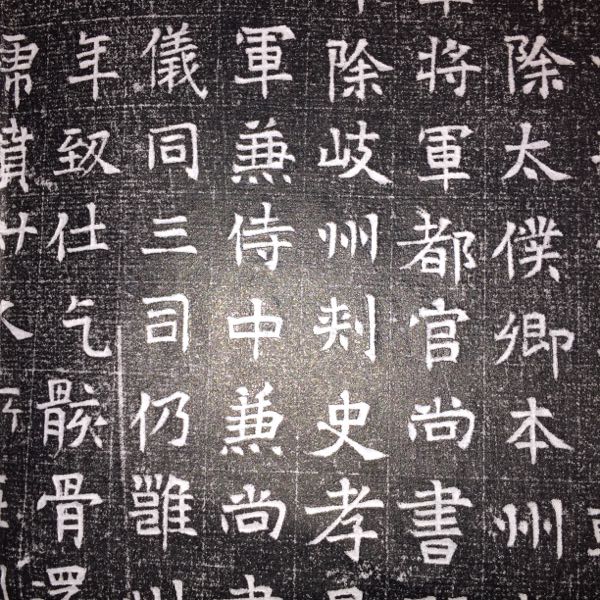 除太僕卿本州
將軍都官尚書
除岐州刾史孝
軍兼侍中兼尚書
儀同三司仍雖州
年致仕乞骸骨